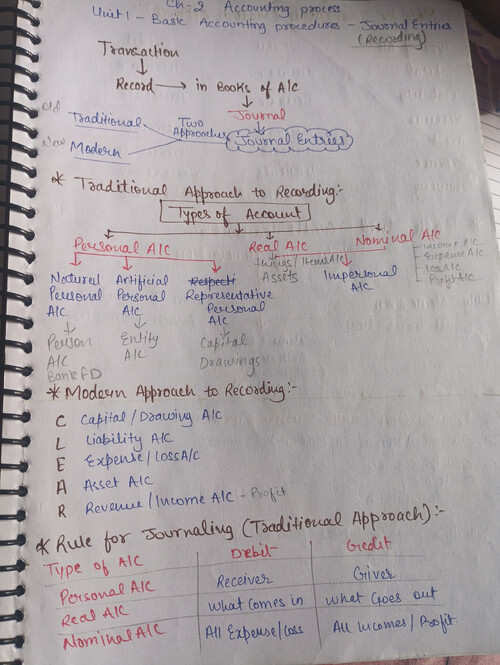 Ch-2 Accounting process
Unit 1 - Basic Accounting procedures - Journal Entries
(Recording)
Transaction
Record → in Books of A/C
Journal
Old
Traditional
Two Approaches
Journal Entries
New
Modern
* Traditional Approach to Recording:-
Types of Account
Personal A/C Real A/C Nominal A/C
Natural Personal A/C
Artificial Personal A/C
Representative Personal A/C
Things/Items A/C
Assets
Impersonal A/C
Income A/C
Expense A/C
Loss A/C
Profit A/C
Person A/C
Bank FD
Entity A/C
Capital
Drawings
* Modern Approach to Recording:-
C Capital/Drawing A/C
L Liability A/C
E Expense/Loss A/C
A Asset A/C
R Revenue/Income A/C - Profit
* Rule for Journaling (Traditional Approach):-
Type of A/C Debit Credit
Personal A/C Receiver Giver
Real A/C What comes in What Goes out
Nominal A/C All Expense/Loss All Incomes/Profit